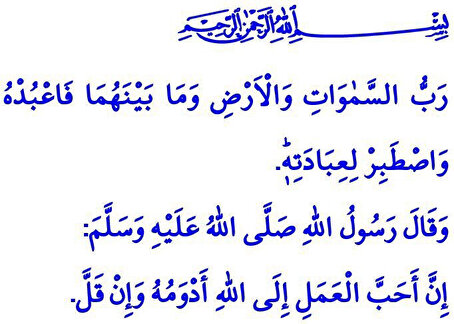 بِسْمِ اللهِ الرَّحْمٰنِ الرَّحِيمِ
رَبُّ السَّمٰوَاتِ وَالْاَرْضِ وَمَا بَيْنَهُمَا فَاعْبُدْهُ
وَاصْطَبِرْ لِعِبَادَتِهٖۜ.
وَقَالَ رَسُولُ اللهِ صَلَّى اللهُ عَلَيْهِ وَسَلَّمَ:
إِنَّ أَحَبَّ الْعَمَلِ إِلَى اللهِ أَدْوَمُهُ وَإِنْ قَلَّ.